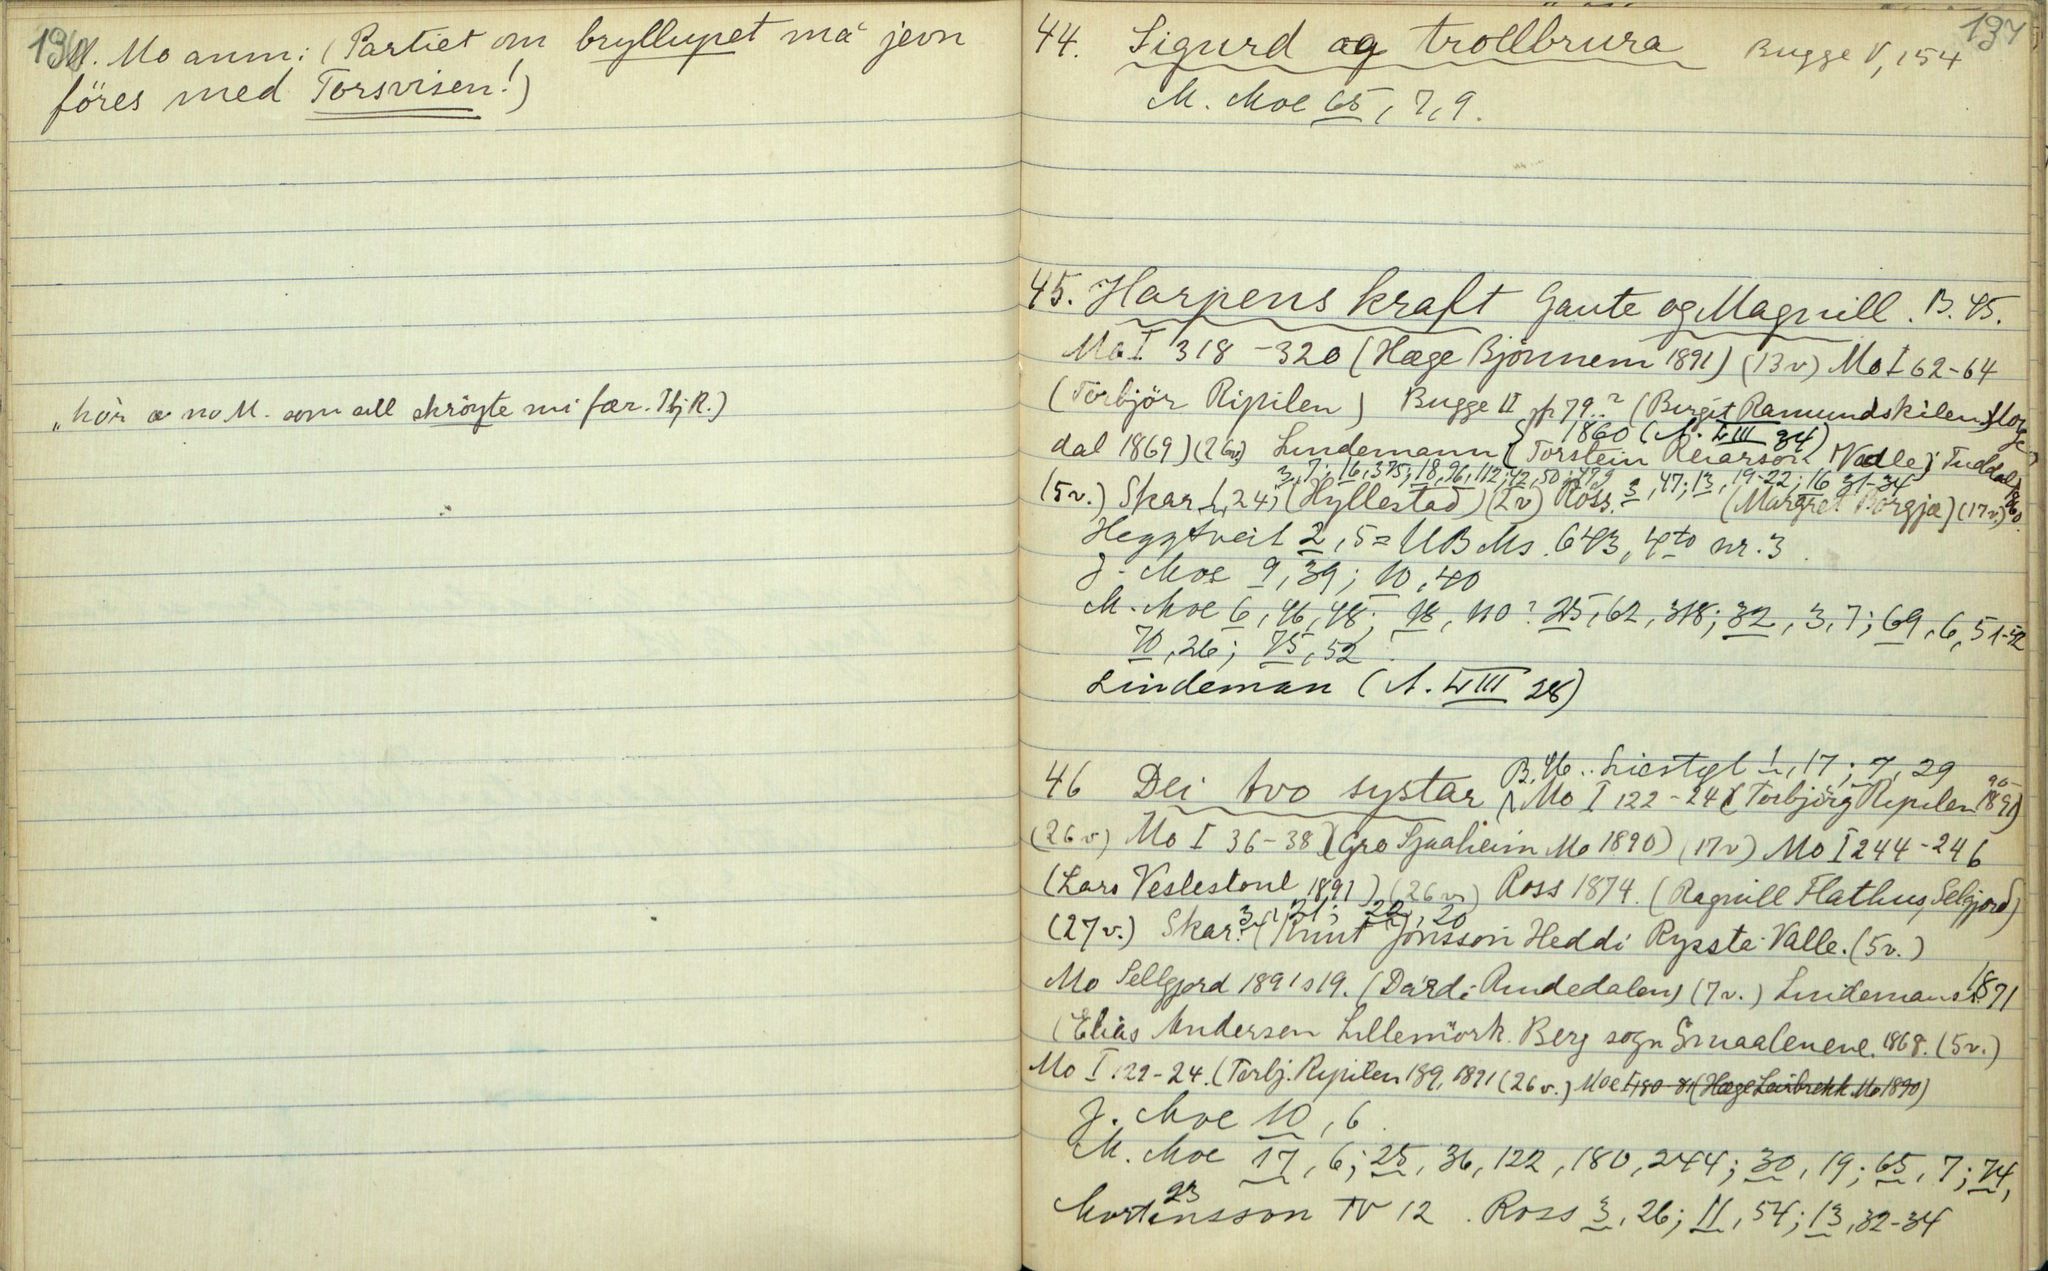 136
M. Mo anm: (Partiet om bryllupet må jevn
föres med Torsvisen!)
"hör æ no M. som all skröyte mi fær. Tbj R.)
137
44. Sigurd og trollbrura Bugge V, 154
M. Moe 65, 7, 9.
45. Harpens kraft Gaute og Magnill. B. 45.
Mo I 318-320 (Hæge Bjönnem 1891) (13 v) Mo I 62-64
(Torbjör Ripilen) Bugge II 79..? (Birgit Ramundskilen,
1860 (A. LIII 34)
dal 1869) (26v) Lindemann (Torstein Reiarson Tuddal, 1860.
3, 7; 16, 375; 18, 96, 112; 42, 50; 47, 9
(5v.) Skar 1, 24, (Hyllestad) (2v) Ross. 3, 47; 13, 19-22; 16 31-34
(Margret Borgja) (17v.)
Heggtveit 2, 5 = UB Ms. 643, 4to nr. 3.
J. Moe 9, 39; 10, 40
M. Moe 6, 46, 48; 18, 110? 25, 62, 318; 32, 3, 7; 69, 6, 51-52
70, 26; 75, 52.
Lindeman (A. LIII 28)
B. 46.. Liestøl 1, 17; 7, 29
46 Dei tvo systar (Mo I 122-24 (Torbjörg Ripilen 90-1891)
(26v) Mo I 36-38 (Gro Sjaaheim Mo 1890) (17v) Mo I 244-246
(Lars Veslestoul 1891) (26v.) Ross 1874. (Ragnill Flathus, Selgjord)
3, 21; 22, 20
(27v.) Skar: (Knut Jónsson Heddi Ryssta Valle. (5v.)
Mo Sellgjord 1891 s 19. (Dárdi Rudedalen) (7v.) Lindemans 1871
(Elias Andersen Lillemörk. Berg sogn Smaalenene. 1868. (5v.)
Mo I 122-24. (Torbj. Ripilen 189, 1891 (26v.) Moe I, 180-81 (Hæge Leirbrekk. Mo 1890)
J. Moe 10, 6.
M. Moe 17, 6; 25, 36, 122, 180, 244; 30, 19; 65, 7; 74,
23
Mortensson TV 12. Ross 3, 26; 11, 54; 13, 32-34